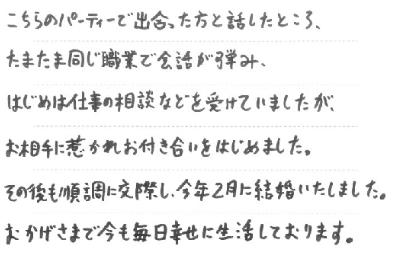 こちらのパーティーで出合った方と話したところ、
たまたま同じ職業で会話が弾み、
はじめは仕事の相談などを受けていましたが、
お相手に惹かれお付き合いをはじめました。
その後も順調に交際し、今年2月に結婚いたしました。
おかげさまで今も毎日幸せに生活しております。